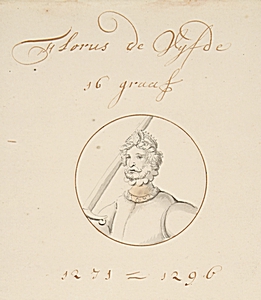 Florus de Vyfde
16 graaf
1271 = 1296